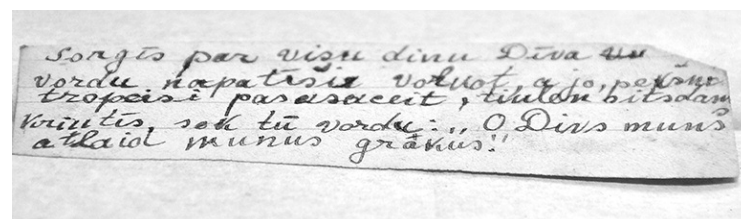 Sorgīs par vişu dinu Dīva
vordu napatīši voluot, a jo,
tropeisi pasasaceit, tiulen sitsdam
kriutīs, sok tū vordu: „O Divs muns
atlaid munus grākus!"